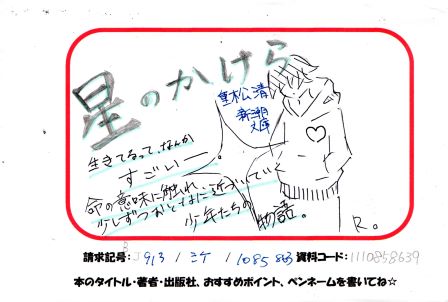 星のかけら
重松清
新潮
文庫
生きてるって、なんか
すごいー。
命の意味に触れ、
少しずつおとなに近づいていく
少年たちの
物語。
R.
請求記号: J 913 / シゲ / 1085863 資料コード: 1110858639
本のタイトル・著者・出版社、おすすめポイント、ペンネームを書いてね☆